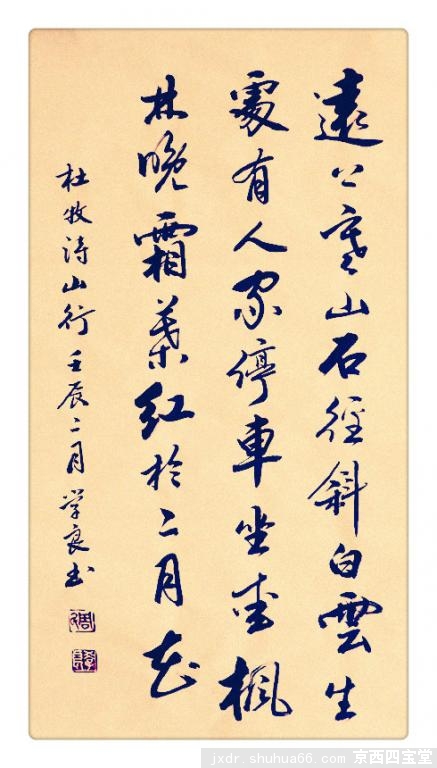 遠上寒山石徑斜白雲生
處有人家停車坐愛楓
林晚霜葉紅於二月花
杜牧诗山行壬辰二月学良书
jxdr.shuhua66.com 京西四宝堂